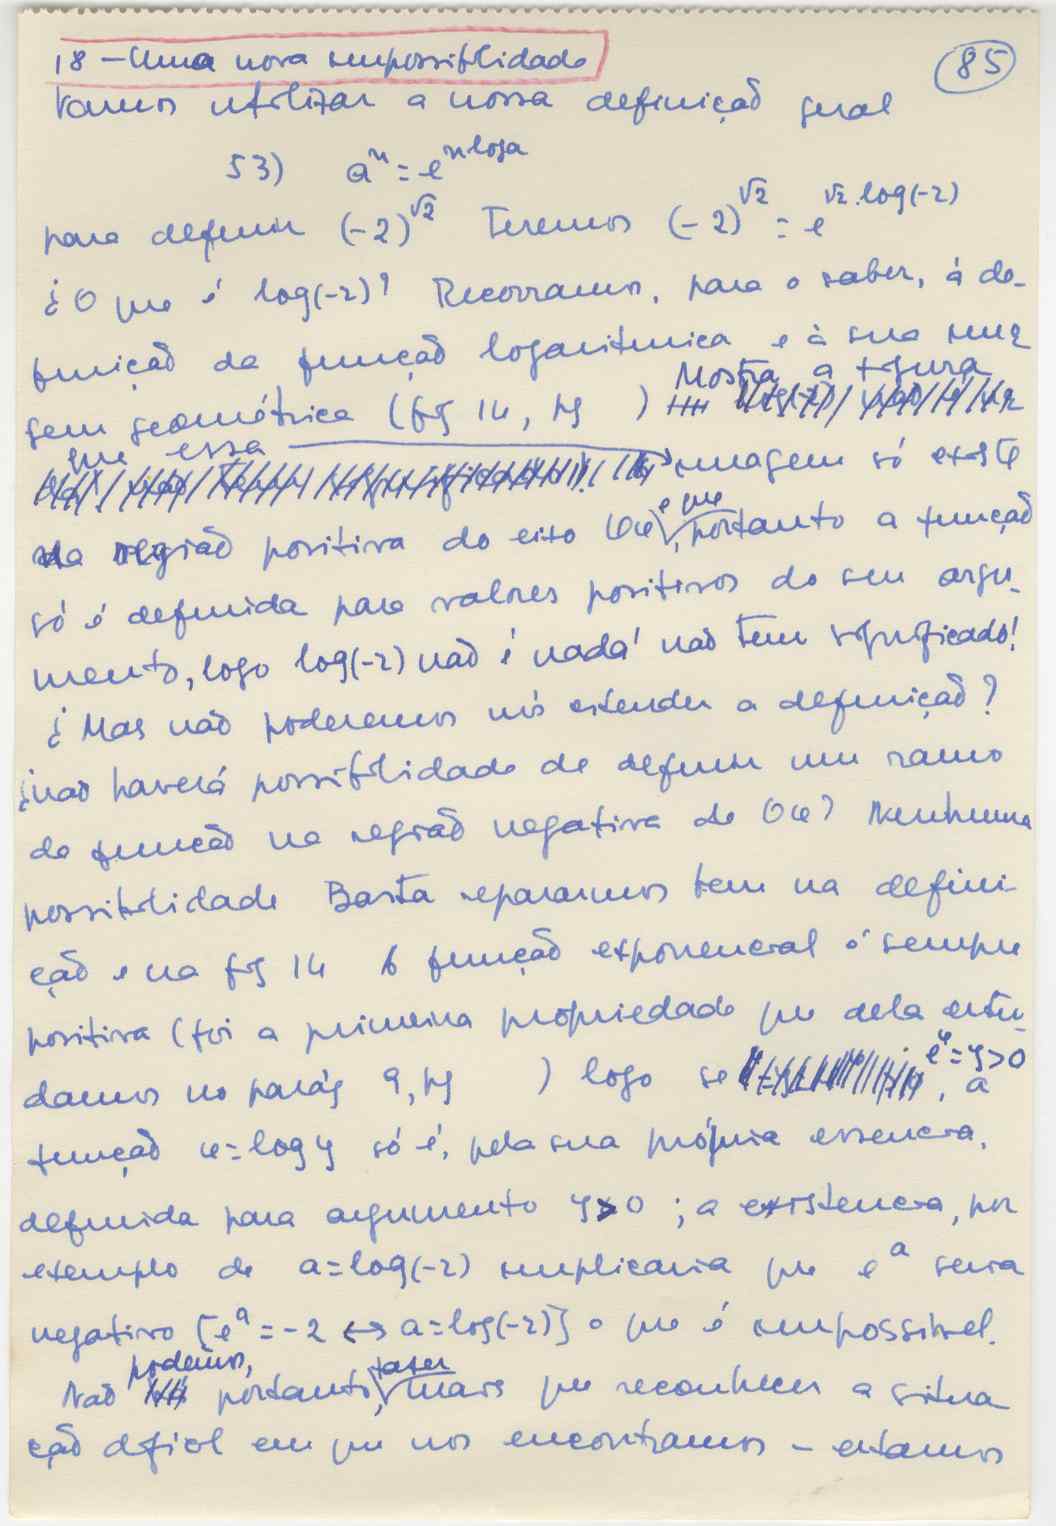 18 – Uma nova impossibilidade
85
Vamos utilizar a nossa definição geral
53) aⁿ = e^{n log a}
para definir (-2)^{√2} Teremos (-2)^{√2} = e^{√2. log(-2)}
¿O que é log(-2)? Recorramos, para o saber, à de-
finição da função logaritmica e à sua ima
gem geométrica (fig 14, pg ) Mostra a figura
que essa imagem só existe
na região positiva do eixo Ou, e que portanto a função
só é definida para valores positivos do seu argu-
mento, logo log(-2) não é nada! não tem significado!
¿Mas não poderemos nós estender a definição?
¿não haverá possibilidade de definir um ramo
da função na região negativa de Ou? Nenhuma
possibilidade Basta repararmos bem na defini-
ção e na fig 14 A função exponencial é sempre
positiva (foi a primeira propriedade que dela estu-
damos no parág 9, pg ) logo se e^u = y > 0, a
função u = log y só é, pela sua própria essencia,
definida para argumento y > 0 ; a existencia, por
exemplo de a = log(-2) implicaria que e^a seria
negativo [e^a = -2 ↔ a = log(-2)] o que é impossivel.
Não podemos, portanto, fazer mais que reconhecer a situa
ção dificil em que nos encontramos – estamos